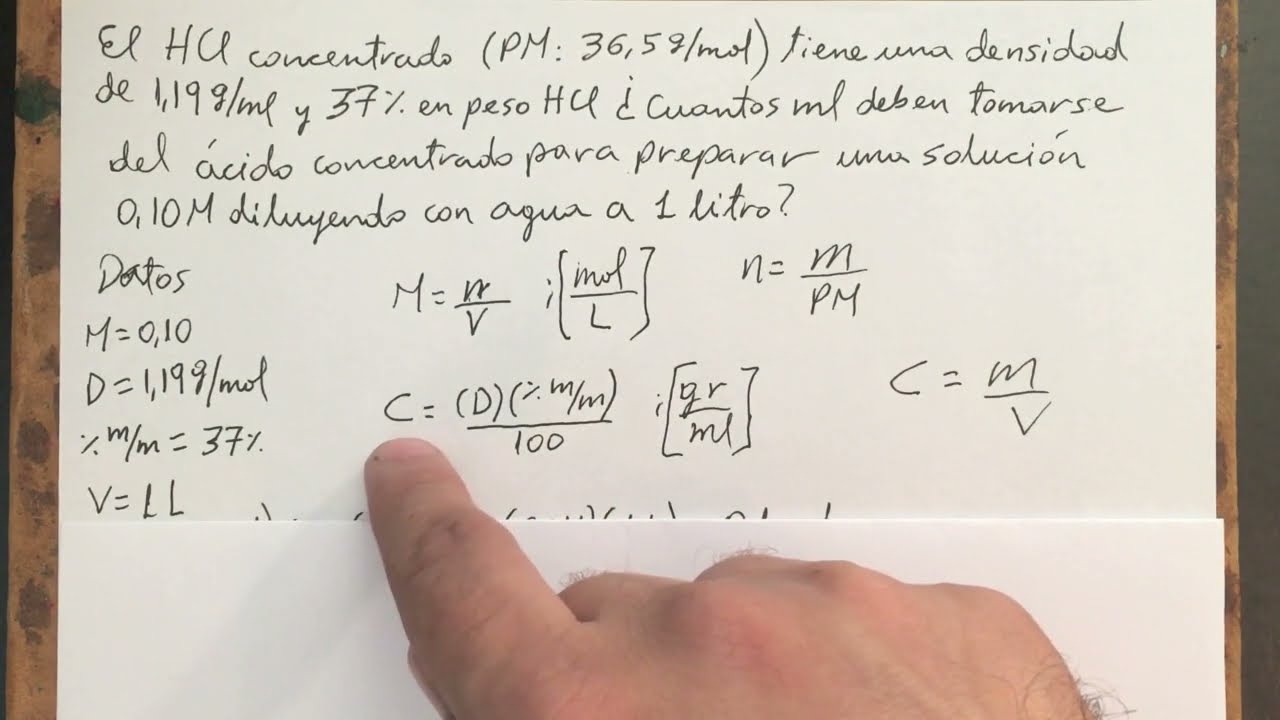 El HCl concentrado (PM: 36,5g/mol) tiene una densidad
de 1,19g/ml y 37% en peso HCl ¿Cuantos ml deben tomarse
del ácido concentrado para preparar una solución
0,10M diluyendo con agua a 1 litro?
Datos
M=0,10
D=1,19g/mol
% m/m = 37%
V=1L
M = n/V ; [mol/L]
n = m/PM
C = (D)(% m/m)/100 ; [gr/ml]
C = m/V